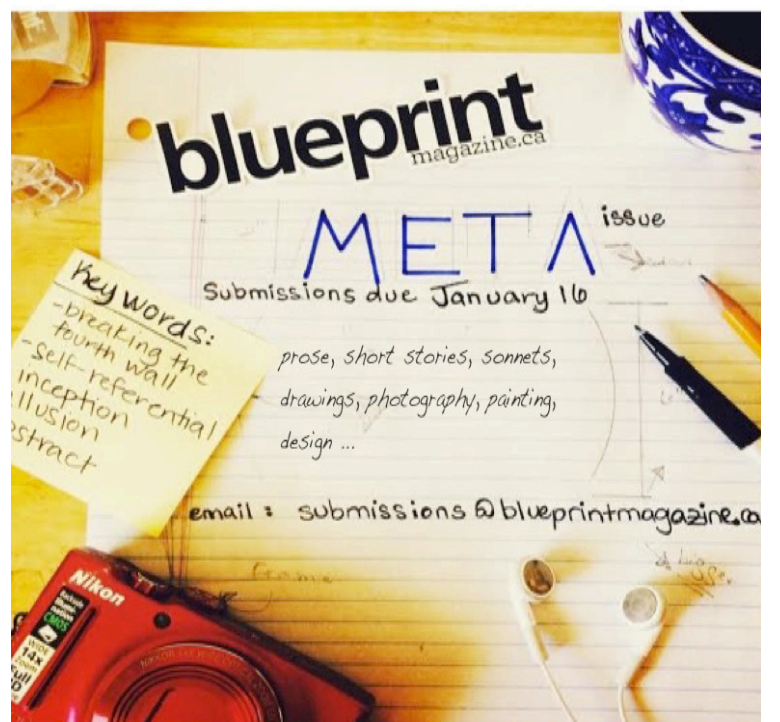 blueprint
magazine.ca
META issue
Submissions due January 16
Key words:
-breaking the
fourth wall
-self-referential
inception
prose, short stories, sonnets,
drawings, photography, painting,
design ...
email: submissions@blueprintmagazine.ca
Frame
Nikon
CMOS
WIDE
14x
Full